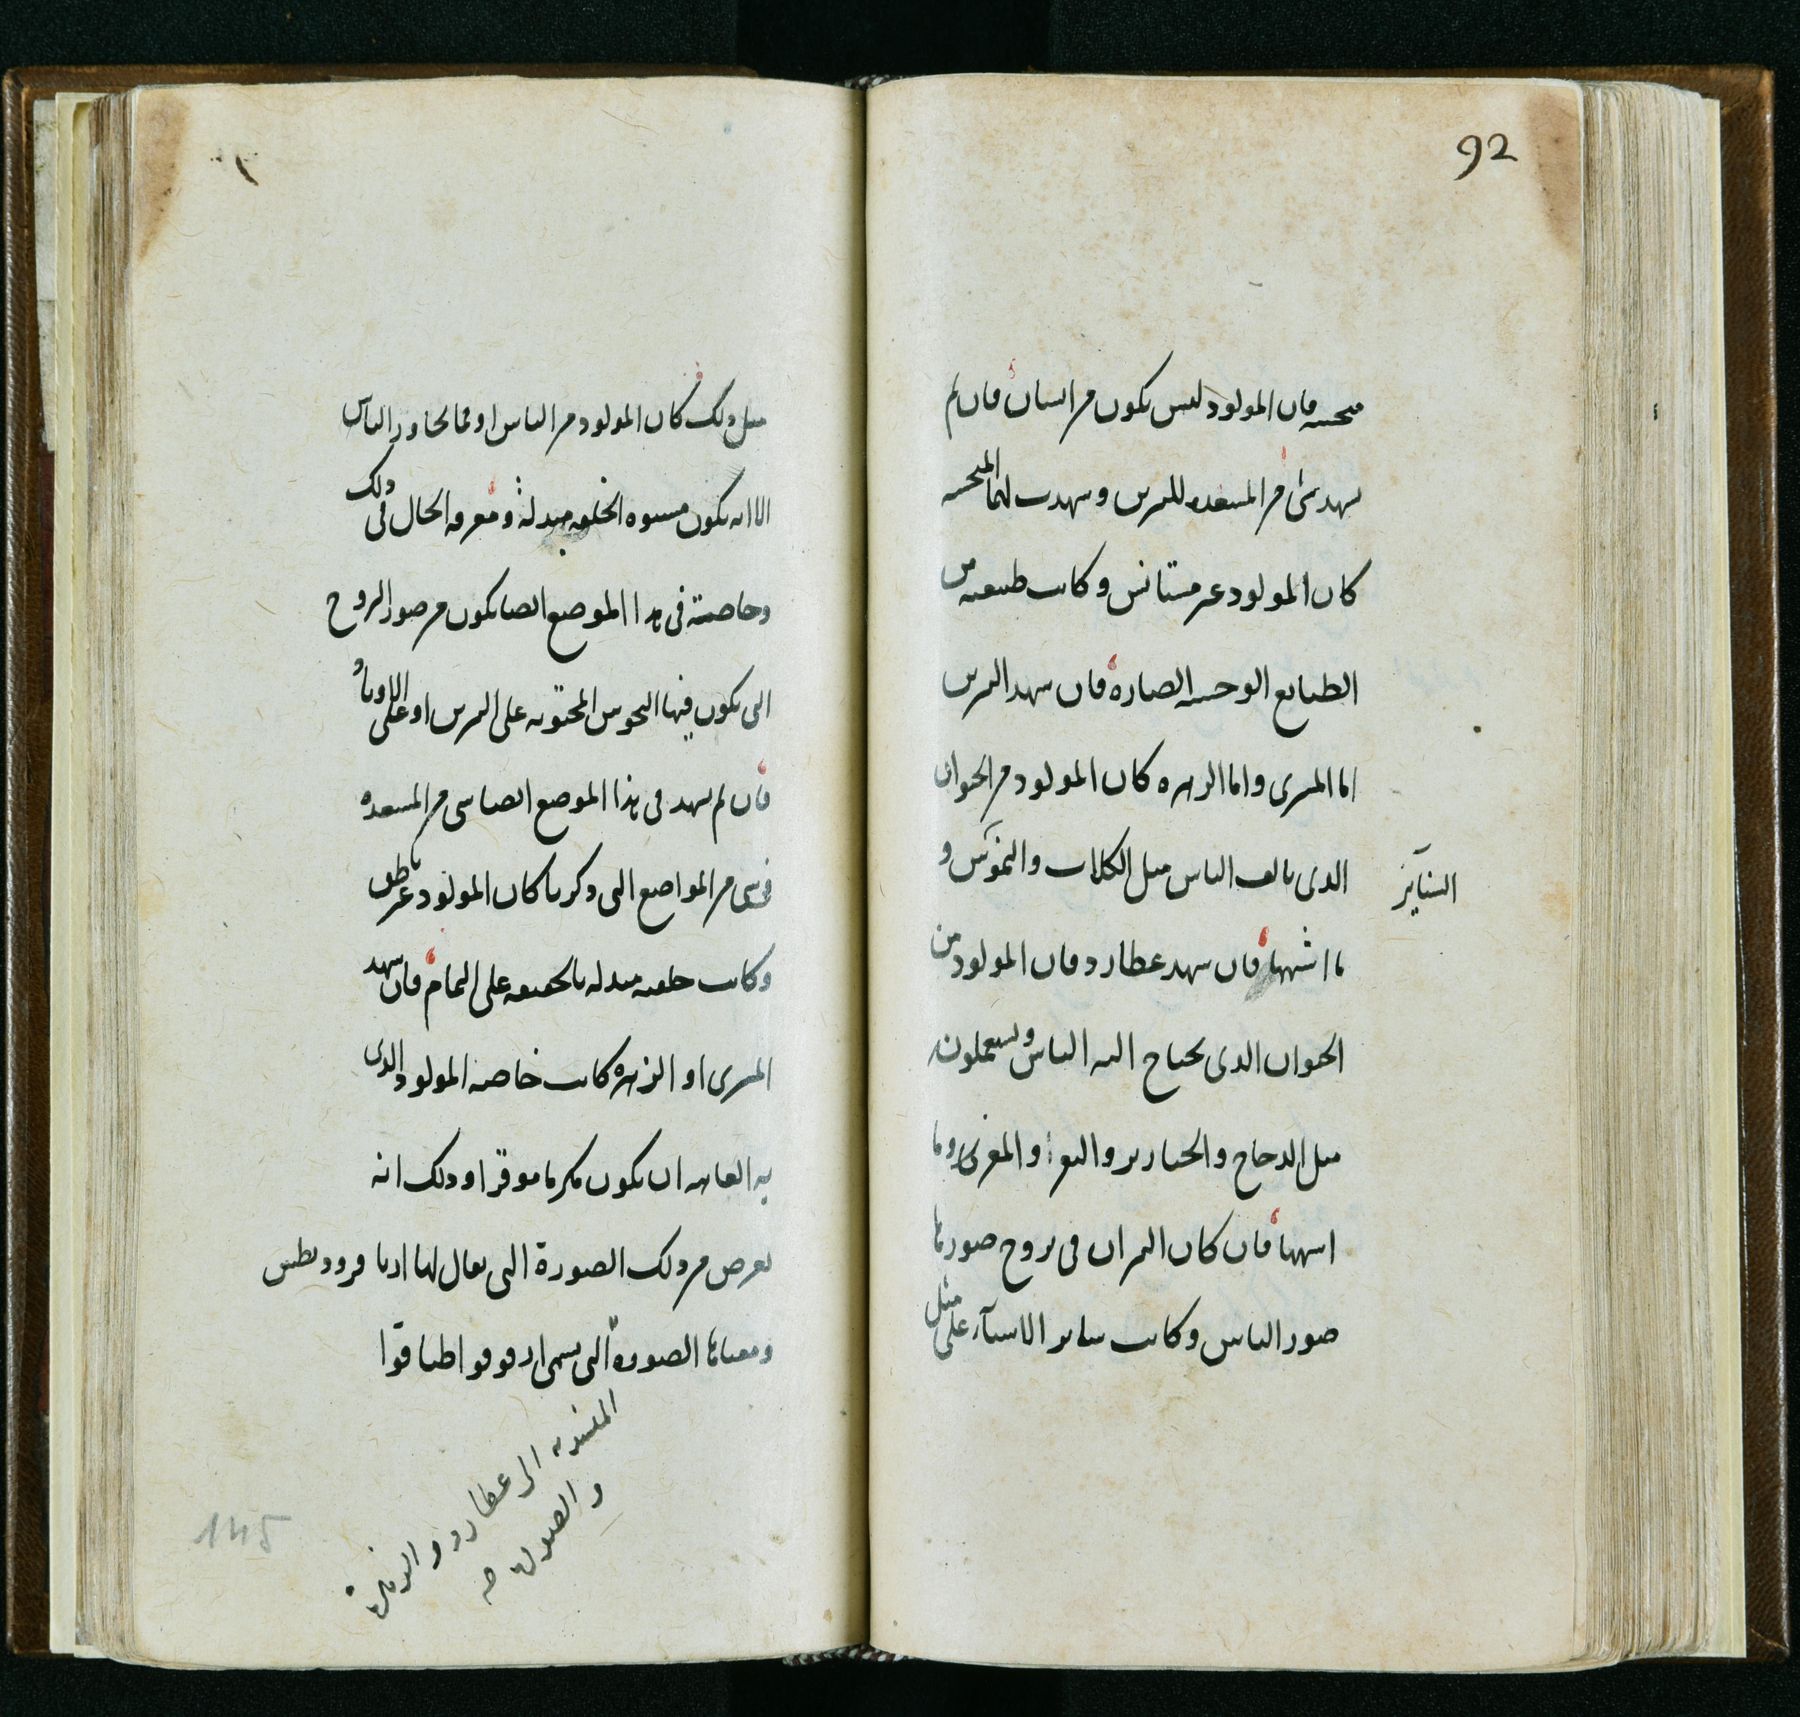 92
منحسه فان المولود ليس يكون من انسان فان لم
يشهد شئ من المسعده للنيرين وشهدت لهما المنحسه
كان المولود غير مستانس وكانت طبيعته من
الطبايع الوحشيه الضاره فان شهد النيرين
اما المشترى واما الزهره كان المولود من الحيوان
الذى يالف الناس مثل الكلاب والنموس و
السنانير
ما اشبهها فان شهد عطارد فان المولود من
الحيوان الذى يحتاج اليه الناس ويستعملونه
مثل الدجاج والخنازير والبقر والمعزى وما
اشبهها فان كان النيران فى بروج صورها
صور الناس وكانت ساير الاشيآء على مثل
مثل ذلك كان المولود من الناس او مما يحاور الناس
الا انه يكون مشوه الخلقه مبدلة ومعرفه الحال فى ذلك
وخاصته فى هذا الموضع ايضا يكون من صور البروج
التى يكون فيها النحوس المحتويه على النيرين او على الاوتاد
فان لم يشهد فى هذا الموضع ايضا شى من المسعده
فى شى من المواضع التى ذكرنا كان المولود غير ناطق
وكانت خلقته مبدله بالحقيقه على التمام فان شهد
المشترى او الزهرة كانت خاصه المولود الذى
به العاهه ان يكون مكرما موقرا وذلك انه
يعرض من ذلك الصورة التى يقال لها ارما فروديطس
ومعناها الصورة التى تسمى ارفوقوا طياقوا
المنسوبه الى عطارد و الزهرة
و الصوره
145